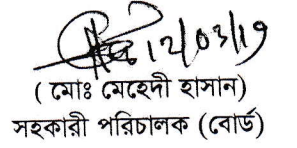 12/03/19
( মোঃ মেহেদী হাসান)
সহকারী পরিচালক (বোর্ড)